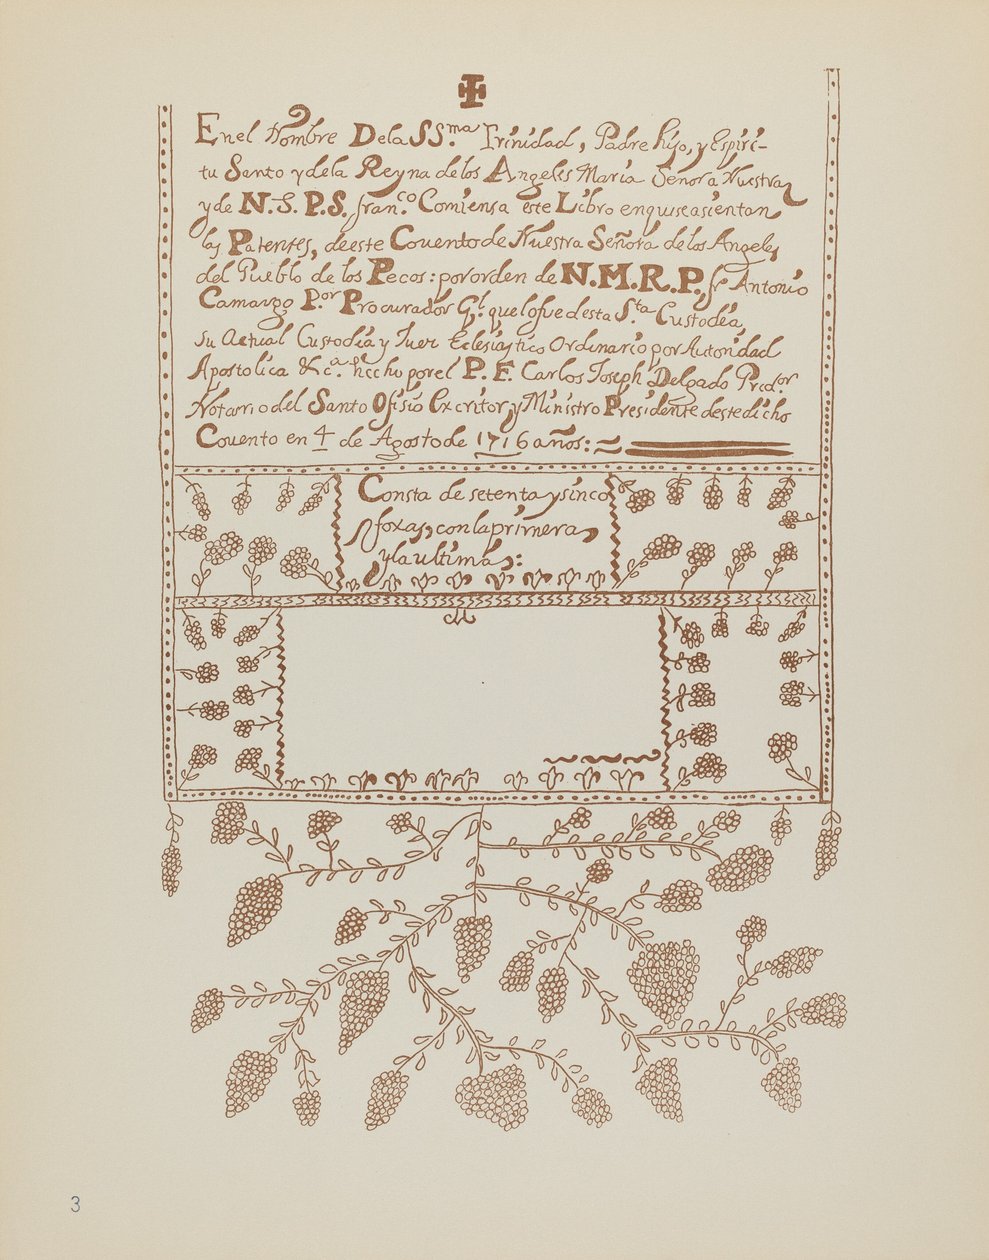 En el Nombre De la SS.ma Trinidad, Padre hijo, y Espiri-
tu Santo y dela Reyna de los Angeles Maria Señora Nuestra
y de N.S. P.S. fran.co Comiensa este Libro en quise asientan
las Patentes, de este Covento de Nuestra Señora de los Angeles
del Pueblo de los Pecos: por orden de N.M.R.P. fr Antonio
Camargo P.or Procurador G.l que lo fue d esta S.ta Custodia,
su Actual Custodia y Juer Eclesiastico Ordinario por Autoridad
Apostolica &c.a hecho por el P. F. Carlos Joseph Delgado Pred.or
Notario del Santo Ofisio Excritor, y Ministro Presidente deste dicho
Covento en 4 de Agosto de 1716 años:~
Consta de setenta y sinco
foxas, con la primera
y la ultima:
3